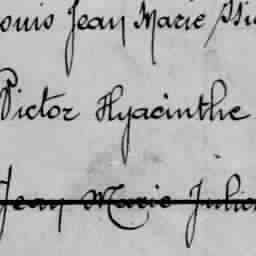 ouis Jean Marie
Victor Hyacinthe
Jean Marie Julien